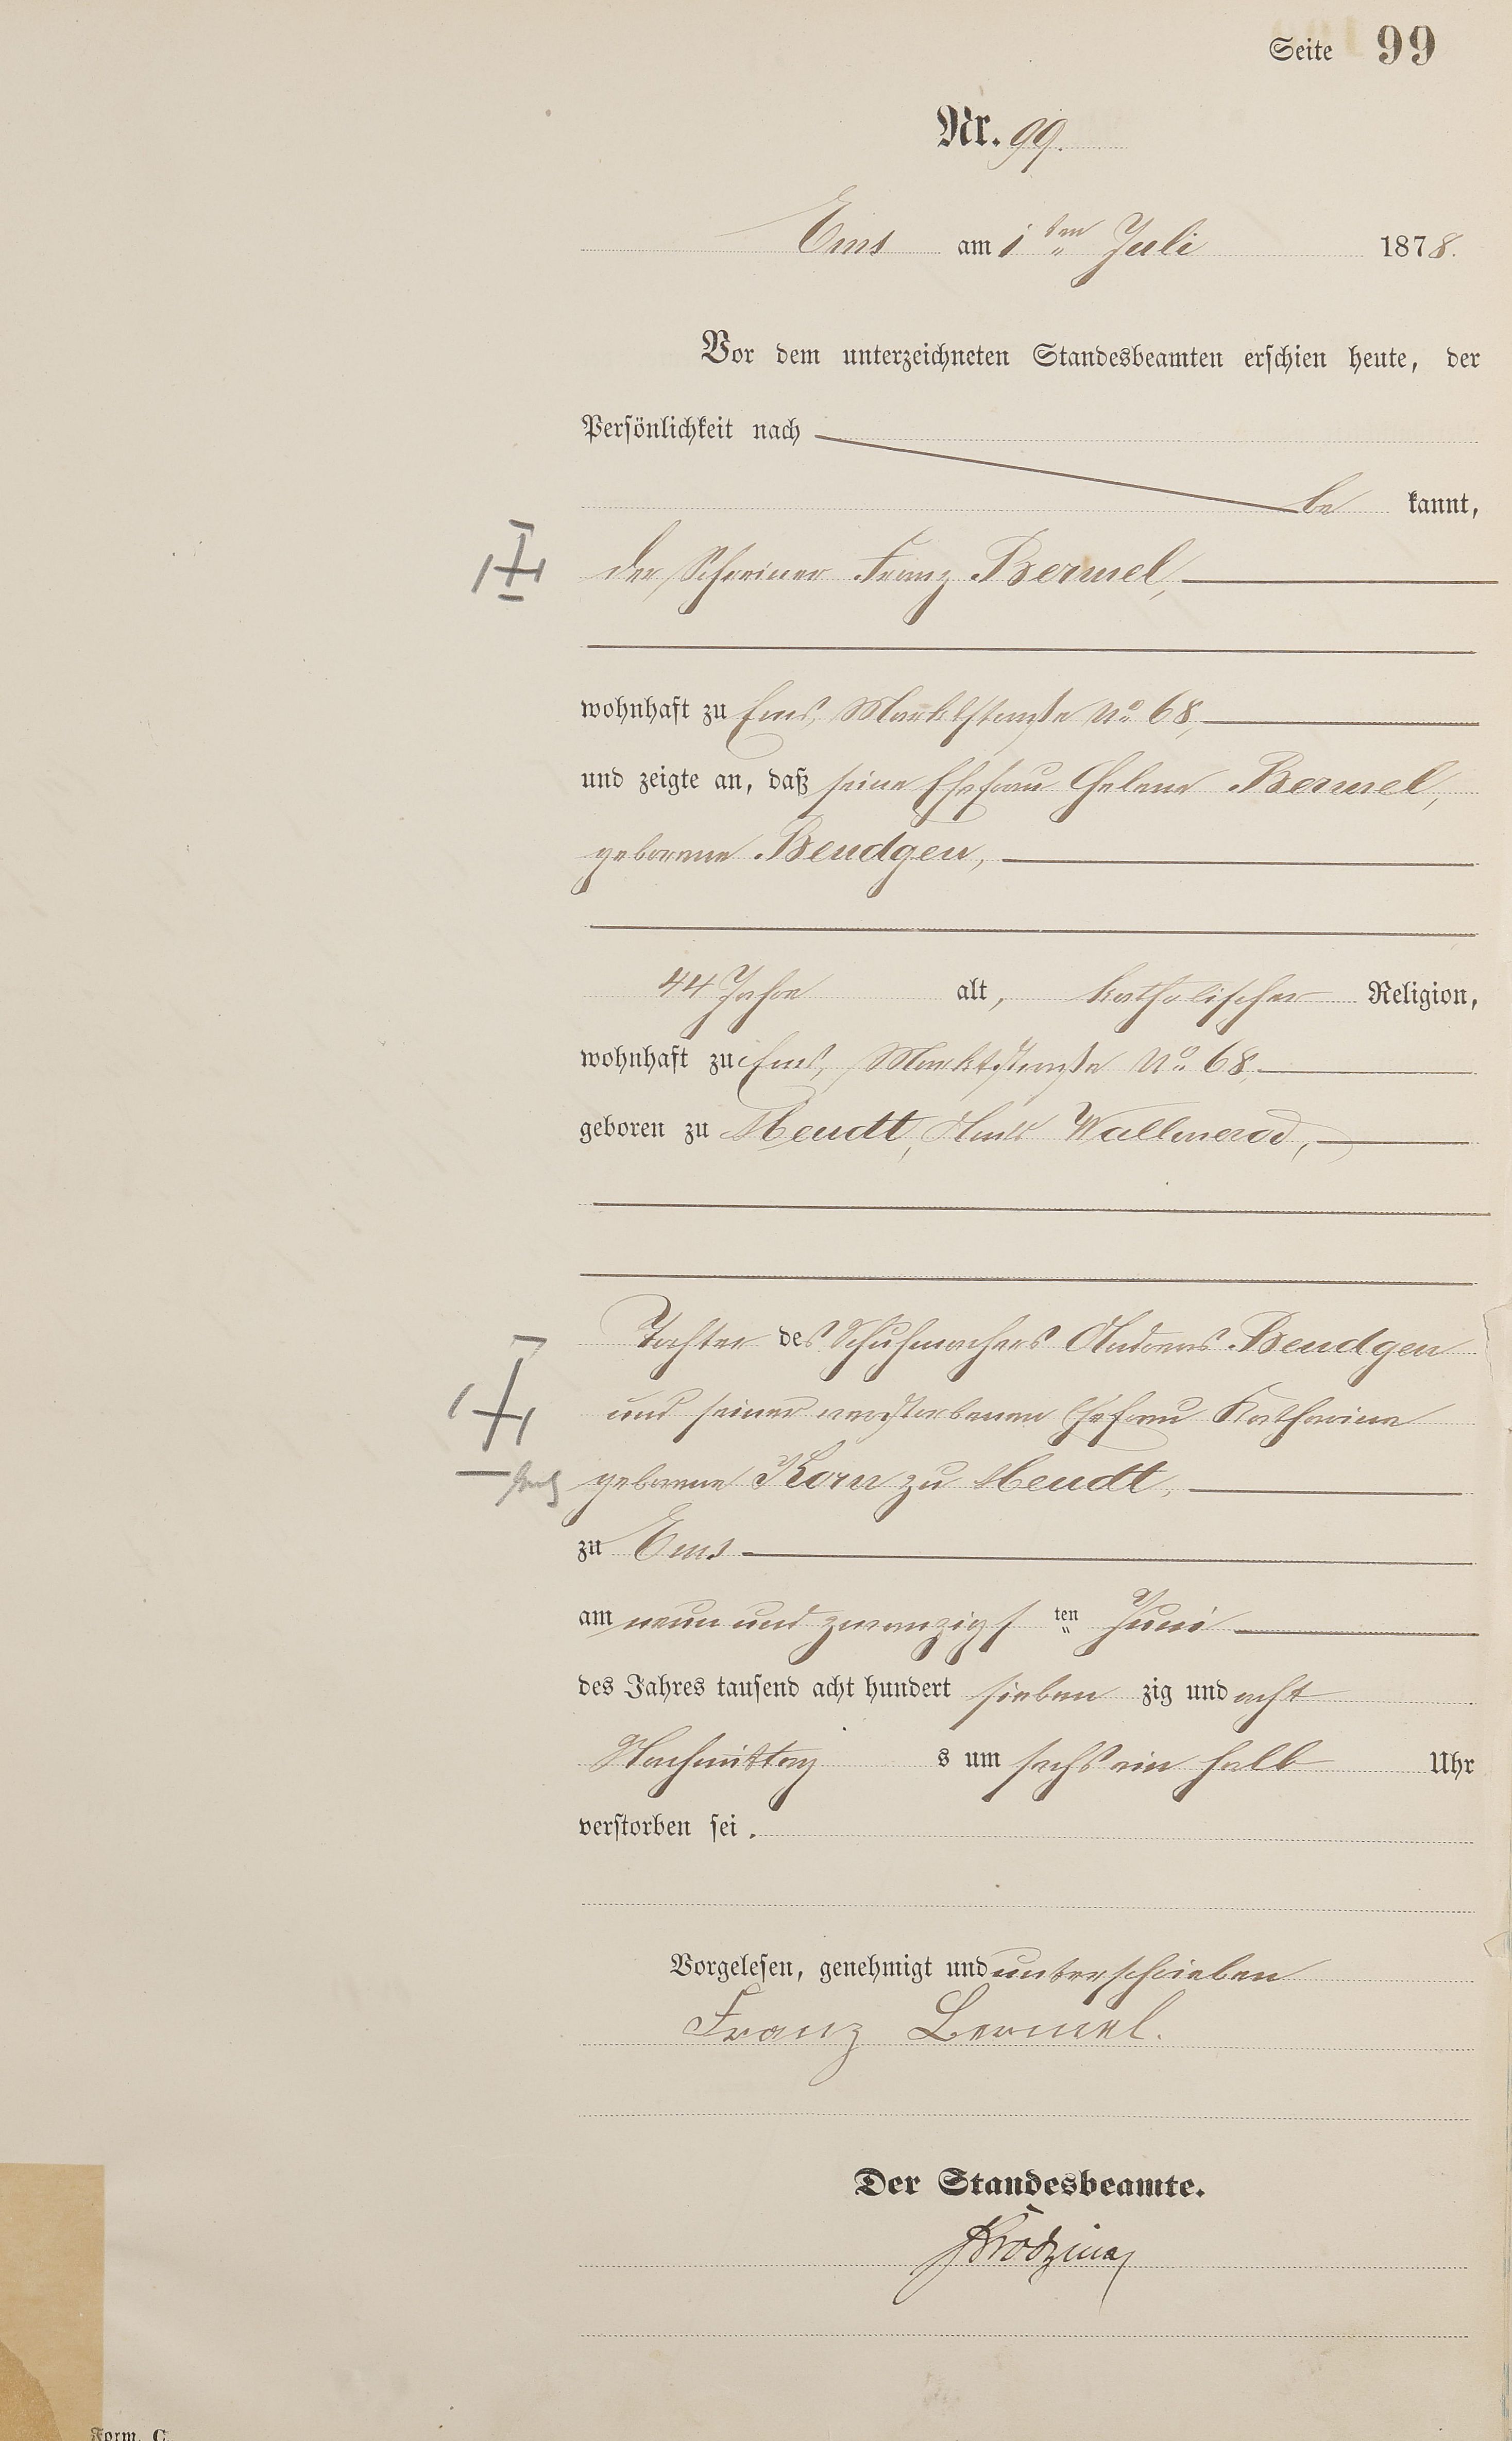 Seite 99
Nr. 99.
Ems am 1ten Juli 1878.
Vor dem unterzeichneten Standesbeamten erschien heute, der
Persönlichkeit nach
be kannt,
der Schreiner Franz Bermel,
wohnhaft zu Ems, Marktstraße No. 68,
und zeigte an, daß seine Ehefrau Helene Bermel,
geborene Bendgen,
44 Jahre alt, katholischer Religion,
wohnhaft zu Ems, Marktstraße No. 68,
geboren zu Meudt, Amts Wallmerod,
Tochter des Schuhmachers Andreas Bendgen
und seiner verstorbenen Ehefrau Katharine
geborene Korn zu Meudt,
zu Ems
am neun und zwanzigsten Juni
des Jahres tausend acht hundert sieben zig und acht
Nachmittag s um sechs ein halb Uhr
verstorben sei.
Vorgelesen, genehmigt und unterschrieben
Franz Bermel.
Der Standesbeamte.
Form. C.